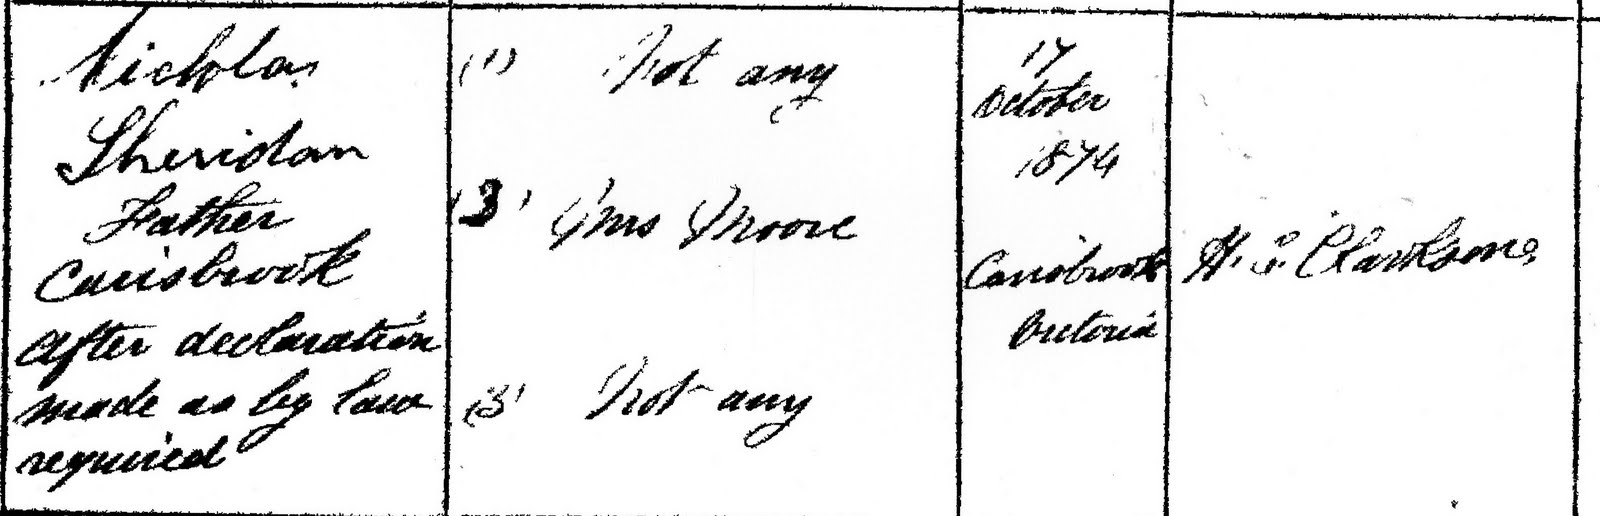 Nicholas
Sheridan
Father
Carisbrook
After declaration
made as by law
required
(1) Not any
(3) Mrs Moore
(3) Not any
17
October
1874
Carisbrook
Victoria
H. S. Clarkson